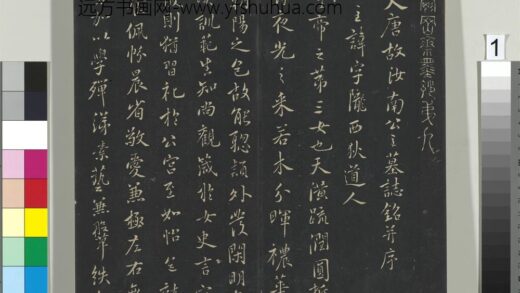 远方书画网-www.yfshuhua.com
大唐故汝南公主墓誌銘并序
主諱字隴西狄道人
帝之第三女也天潢疏潤圓折
夜光之采若木分暉穠華
陽之色故能聰穎外發閑明
訓範生知尚觀箴於女史言容
則猶習禮於公宮至如怡色就
佩帨晨省敬愛兼極左右無
加以學殫綈素藝兼鞶紩
1